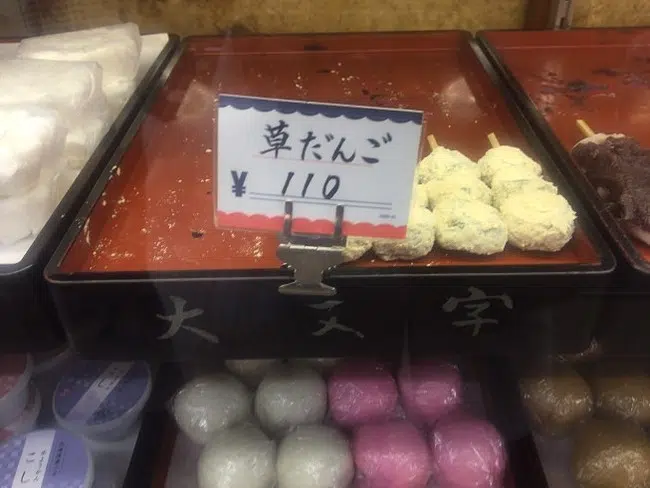 草だんご
¥ 110
大文字
こし